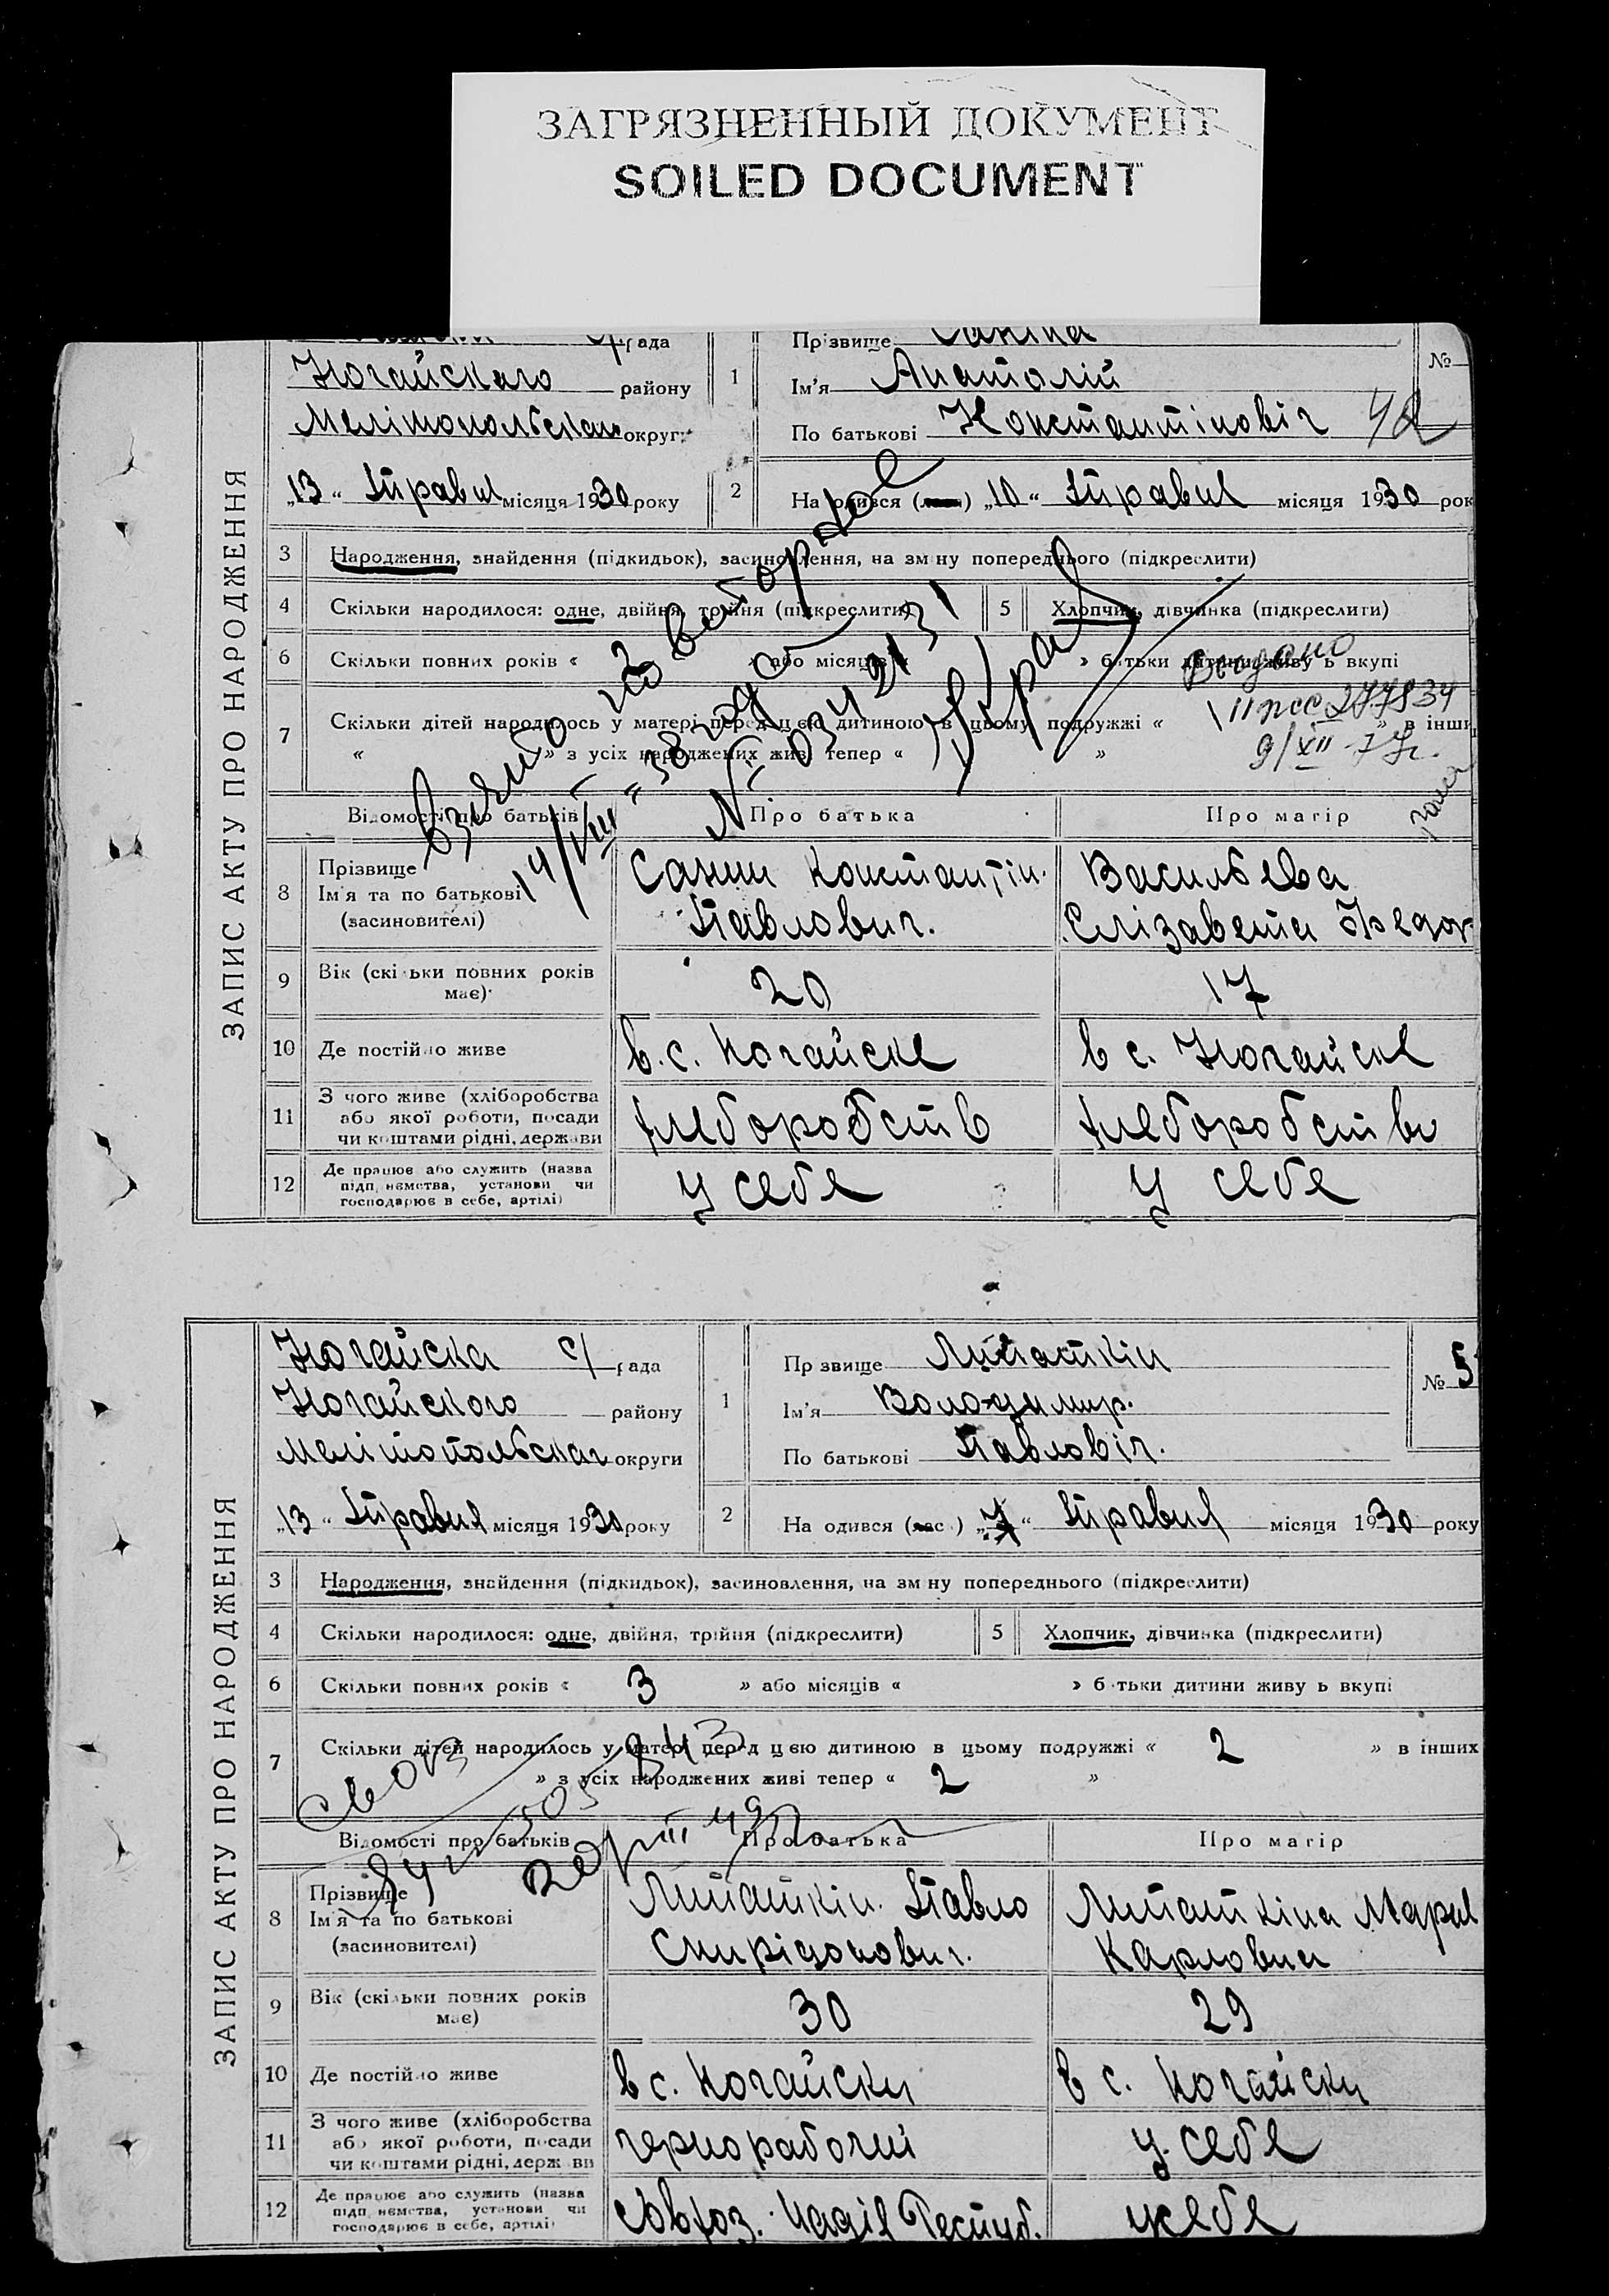 ЗАГРЯЗНЕННЫЙ ДОКУМЕНТ
SOILED DOCUMENT
ЗАПИС АКТУ ПРО НАРОДЖЕННЯ
рада
Ногайскаго району
округи
„13“ Травня місяця 1930 року
1 Прізвище
Ім'я Анатолій
По батькові Константіновіч
№
2 На одився „10“ Травня місяця 1930 рок
3 Народження, знайдення (підкидьок), засиновлення, на зм ну попереднього (підкреслити)
4 Скільки народилося: одне, двійня, трійня (підкреслити)
5 Хлопчик, дівчинка (підкреслити)
6 Скільки повних років « » або місяців « » батьки дитини живу ь вкупі
7 Скільки дітей народилось у матері перед цією дитиною в цьому подружжі « » в інши
« » з усіх народжених живі тепер « »
14/VIII 38 года
Видано
9/XII-77г.
Відомості про батьків
Про батька
Про матір
8 Прізвище
Ім'я та по батькові
(засиновителі)
Санин Константін
Павлович.
Васильева
Єлізавета Федор
9 Вік (скільки повних років
має)
20
17
10 Де постійно живе
в.с. Ногайске
в с. Ногайске
11 З чого живе (хліборобства
або якої роботи, посади
чи коштами рідні, держави
12 Де працює або служить (назва
підп иємства, установи чи
господарює в себе, артілі)
у себе
у себе
ЗАПИС АКТУ ПРО НАРОДЖЕННЯ
Ногайска с/рада
Ногайского району
округи
„13“ Травня місяця 1930 року
1 Пр звище Липаткін
Ім'я Володимир.
По батькові Павловіч.
№ 5
2 На одився „7“ Травня місяця 1930 року
3 Народження, знайдення (підкидьок), засиновлення, на зм ну попереднього (підкреслити)
4 Скільки народилося: одне, двійня, трійня (підкреслити)
5 Хлопчик, дівчинка (підкреслити)
6 Скільки повних років « 3 » або місяців « » б тьки дитини живу ь вкупі
7 Скільки дітей народилось у матері перед цією дитиною в цьому подружжі « 2 » в інших
» з усіх народжених живі тепер « 2 »
Відомості про батьків
Про батька
Про матір
8 Прізвище
Ім'я та по батькові
(засиновителі)
Липаткін. Павло
Спирідонович.
Липаткіна Мария
Карловна
9 Вік (скільки повних років
має)
30
29
10 Де постійно живе
в с. Ногайску
в с. Ногайску
11 З чого живе (хліборобства
або якої роботи, посади
чи коштами рідні, держ ви
чернорабочий
у себе
12 Де працює або служить (назва
підп иємства, установи чи
господарює в себе, артілі)
у себе